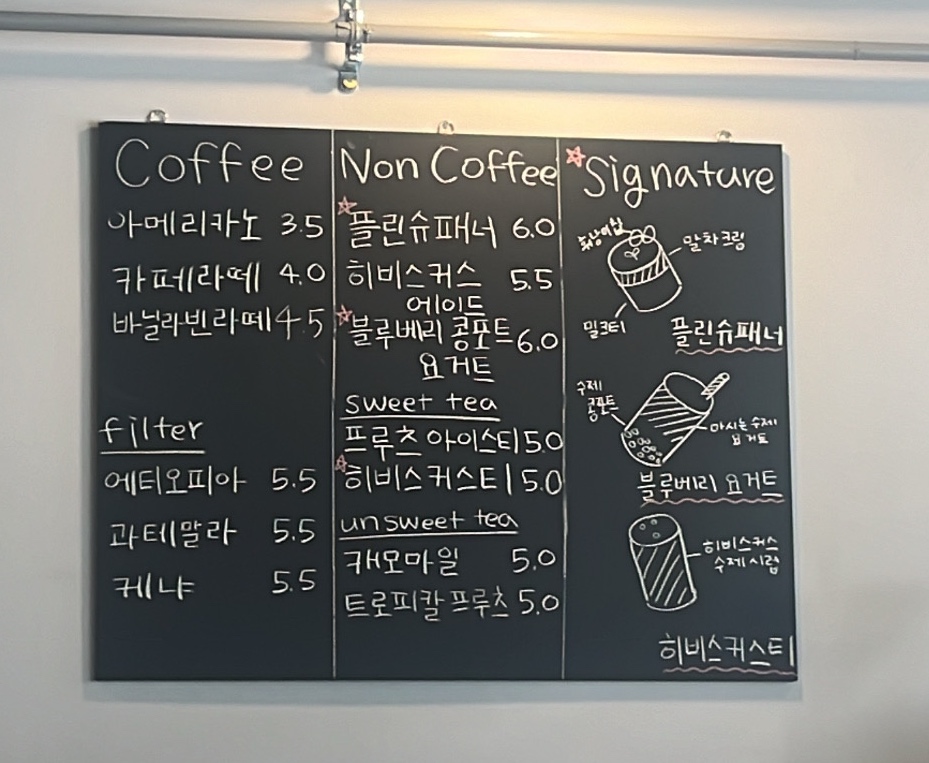 Coffee
아메리카노 3.5
카페라떼 4.0
바닐라빈라떼 4.5
filter
에티오피아 5.5
과테말라 5.5
케냐 5.5
Non Coffee
플린슈패너 6.0
히비스커스 5.5
에이드
블루베리 콩포트 6.0
요거트
sweet tea
프루츠 아이스티 5.0
히비스커스티 5.0
unsweet tea
캐모마일 5.0
트로피칼 프루츠 5.0
Signature
말차크림
밀크티
플린슈패너
수제
콩포트
마시는 수제
요거트
블루베리 요거트
히비스커스
수제시럽
히비스커스티